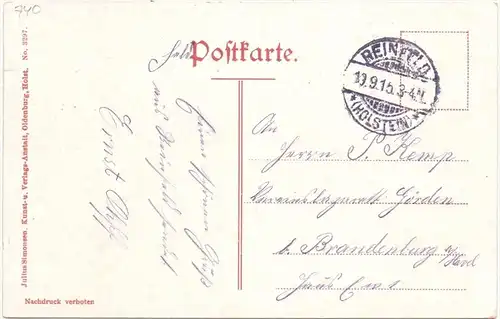 740
Postkarte.
REINFELD
19.9.15.3-4N.
*(HOLSTEIN)*
An
Herrn P. Kemp
Görden
b. Brandenburg a/Havel
Haus
Einen schönen Gruß
aus Reinfeld sendet
Ernst
Julius Simonsen, Kunst- u. Verlags-Anstalt, Oldenburg, Holst. No. 3297.
Nachdruck verboten